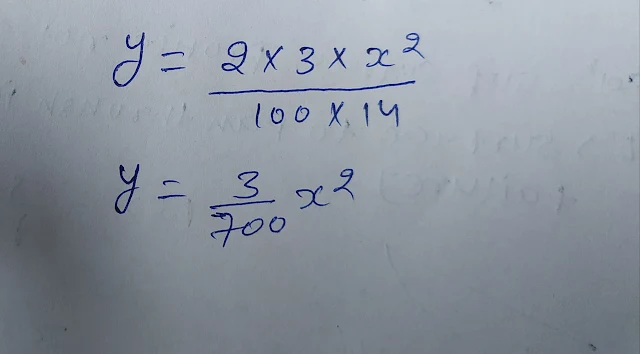 y = 2 × 3 × x²
100 × 14
y = 3/700 x²